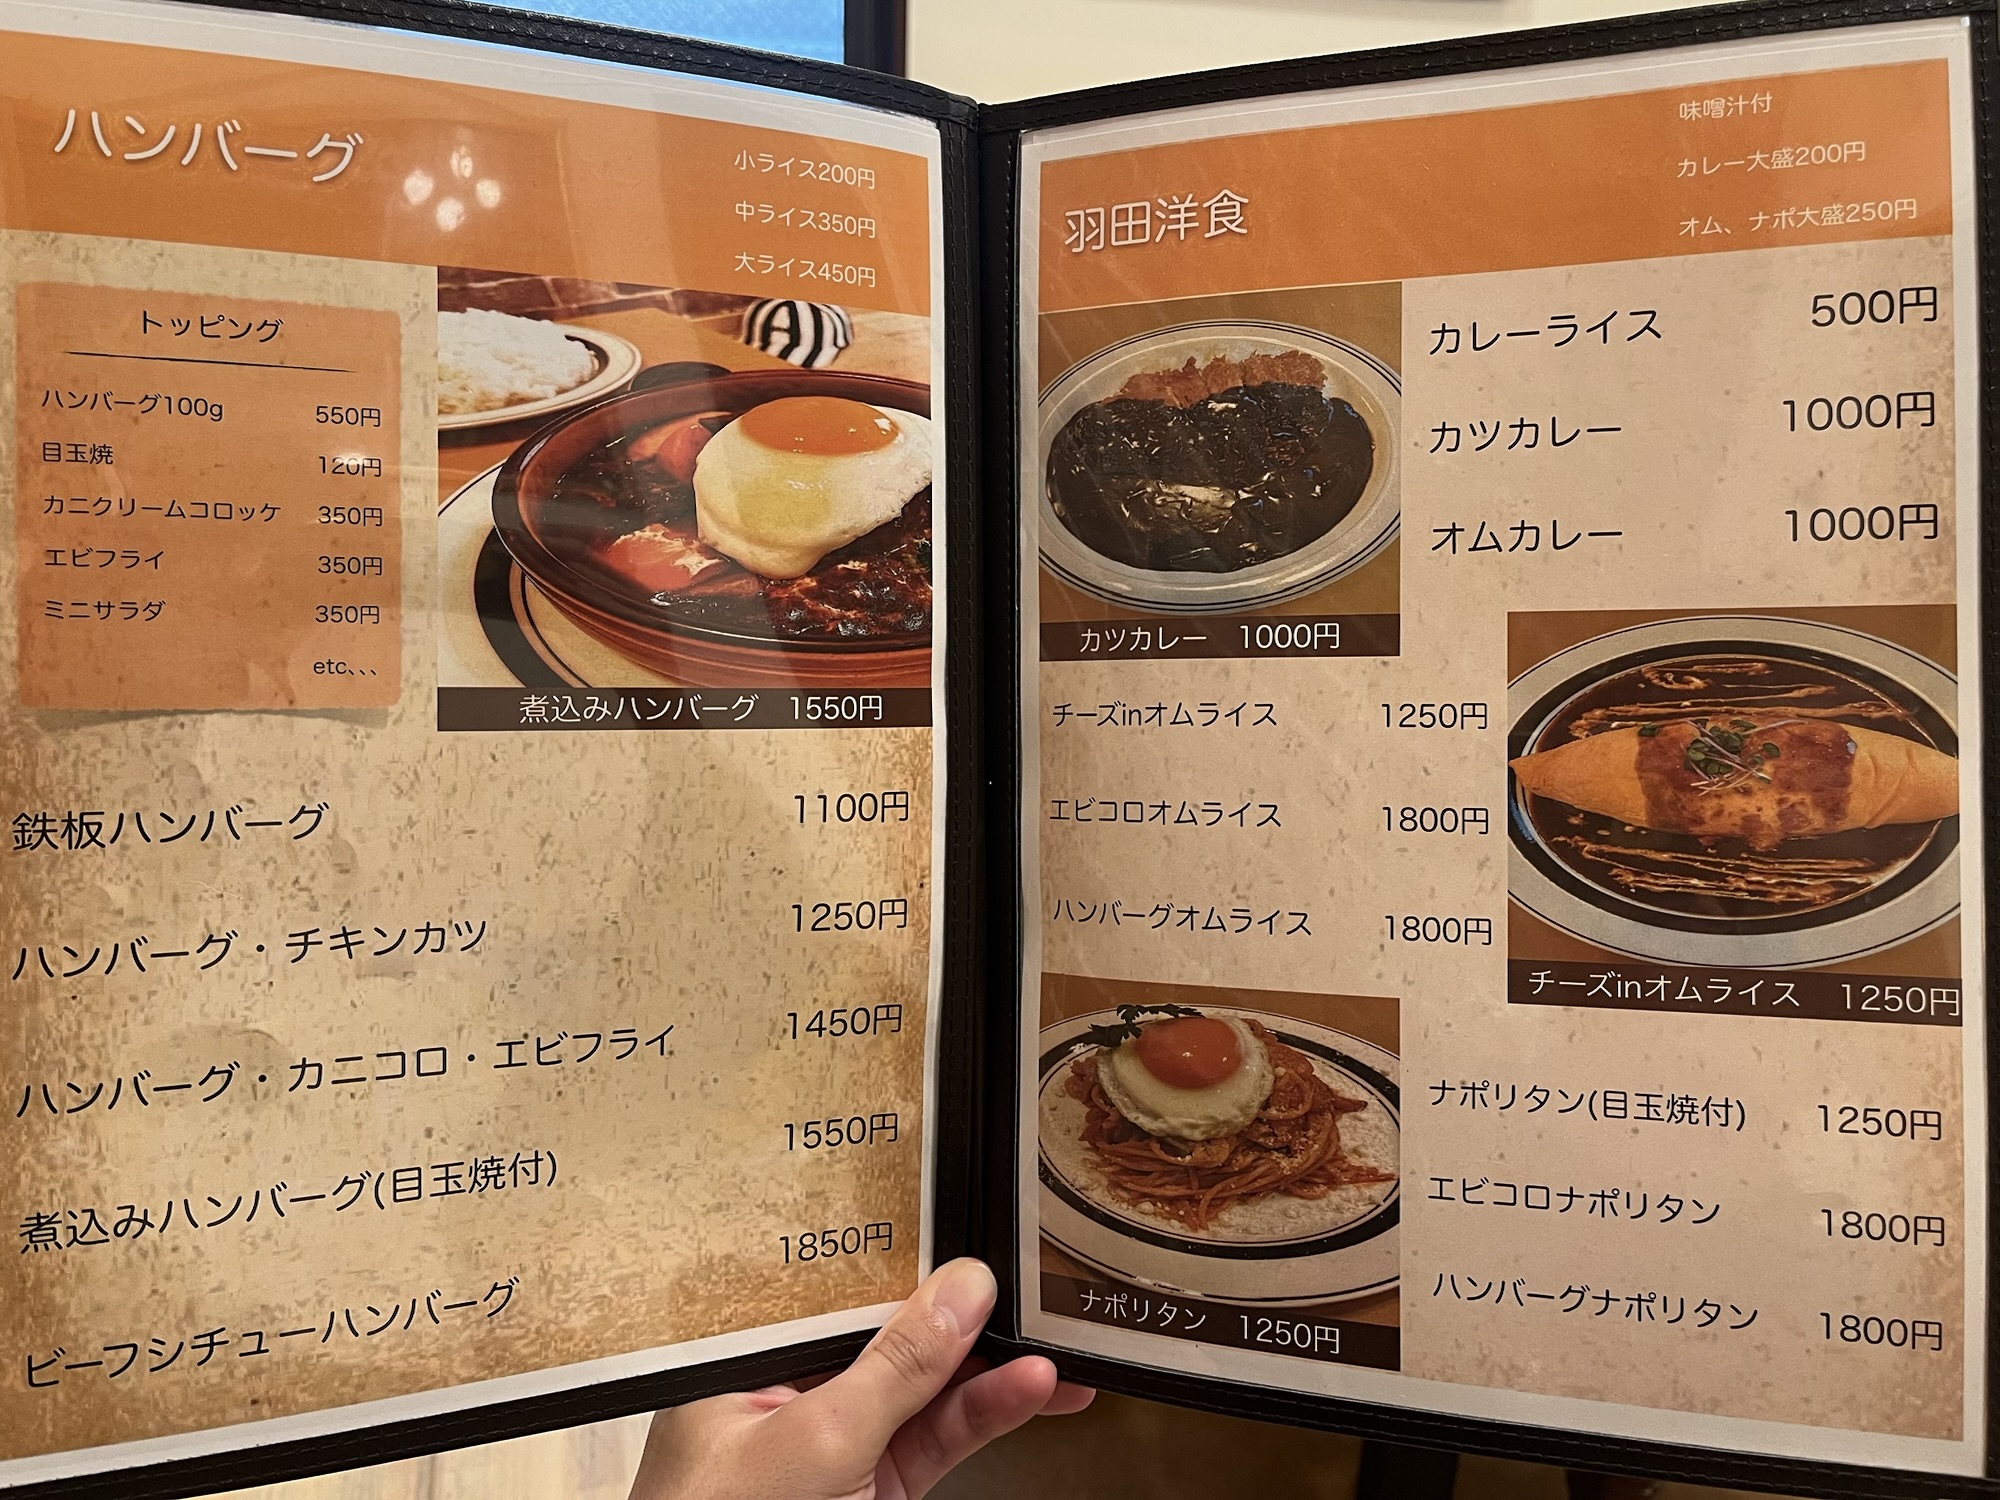 ハンバーグ
小ライス200円
中ライス350円
大ライス450円
トッピング
ハンバーグ100g 550円
目玉焼 120円
カニクリームコロッケ 350円
エビフライ 350円
ミニサラダ 350円
etc、、、
煮込みハンバーグ 1550円
鉄板ハンバーグ 1100円
ハンバーグ・チキンカツ 1250円
ハンバーグ・カニコロ・エビフライ 1450円
煮込みハンバーグ(目玉焼付) 1550円
ビーフシチューハンバーグ 1850円
羽田洋食
味噌汁付
カレー大盛200円
オム、ナポ大盛250円
カレーライス 500円
カツカレー 1000円
オムカレー 1000円
カツカレー 1000円
チーズinオムライス 1250円
エビコロオムライス 1800円
ハンバーグオムライス 1800円
チーズinオムライス 1250円
ナポリタン(目玉焼付) 1250円
エビコロナポリタン 1800円
ハンバーグナポリタン 1800円
ナポリタン 1250円